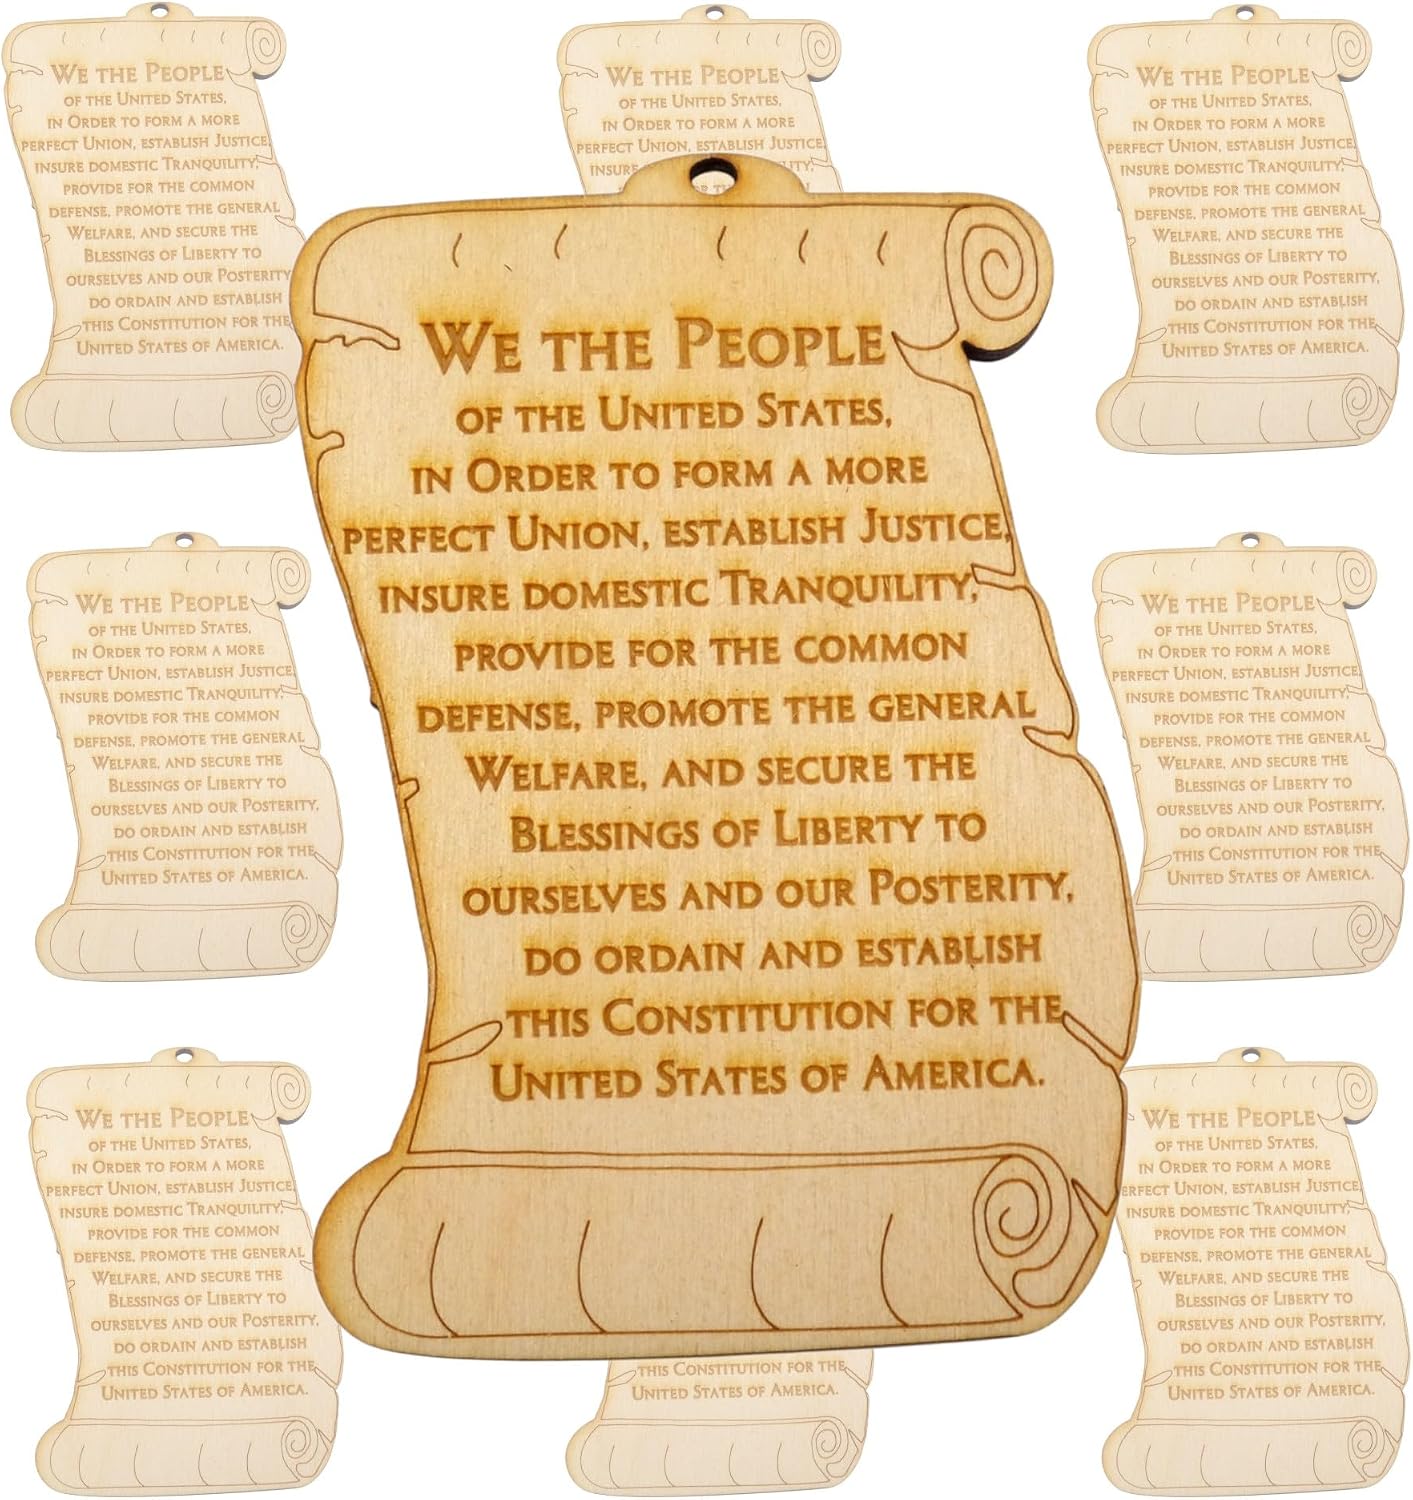 We the People
of the United States,
in Order to form a more
perfect Union, establish Justice,
insure domestic Tranquility,
provide for the common
defense, promote the general
Welfare, and secure the
Blessings of Liberty to
ourselves and our Posterity,
do ordain and establish
this Constitution for the
United States of America.
We the People
of the United States,
in Order to form a more
perfect Union, establish Justice,
insure domestic Tranquility,
provide for the common
defense, promote the general
Welfare, and secure the
Blessings of Liberty to
ourselves and our Posterity,
do ordain and establish
this Constitution for the
United States of America.
We the People
of the United States,
in Order to form a more
perfect Union, establish Justice,
We the People
of the United States,
in Order to form a more
perfect Union, establish Justice,
insure domestic Tranquility,
provide for the common
defense, promote the general
Welfare, and secure the
Blessings of Liberty to
ourselves and our Posterity,
do ordain and establish
this Constitution for the
United States of America.
We the People
of the United States,
in Order to form a more
perfect Union, establish Justice,
insure domestic Tranquility,
provide for the common
defense, promote the general
Welfare, and secure the
Blessings of Liberty to
ourselves and our Posterity,
do ordain and establish
this Constitution for the
United States of America.
We the People
of the United States,
in Order to form a more
perfect Union, establish Justice,
insure domestic Tranquility,
provide for the common
defense, promote the general
Welfare, and secure the
Blessings of Liberty to
ourselves and our Posterity,
do ordain and establish
this Constitution for the
United States of America.
We the People
of the United States,
in Order to form a more
perfect Union, establish Justice,
insure domestic Tranquility,
provide for the common
defense, promote the general
Welfare, and secure the
Blessings of Liberty to
ourselves and our Posterity,
do ordain and establish
this Constitution for the
United States of America.
this Constitution for the
United States of America.
We the People
of the United States,
in Order to form a more
Union, establish Justice,
insure domestic Tranquility,
provide for the common
defense, promote the general
Welfare, and secure the
Blessings of Liberty to
ourselves and our Posterity,
do ordain and establish
this Constitution for the
United States of America.